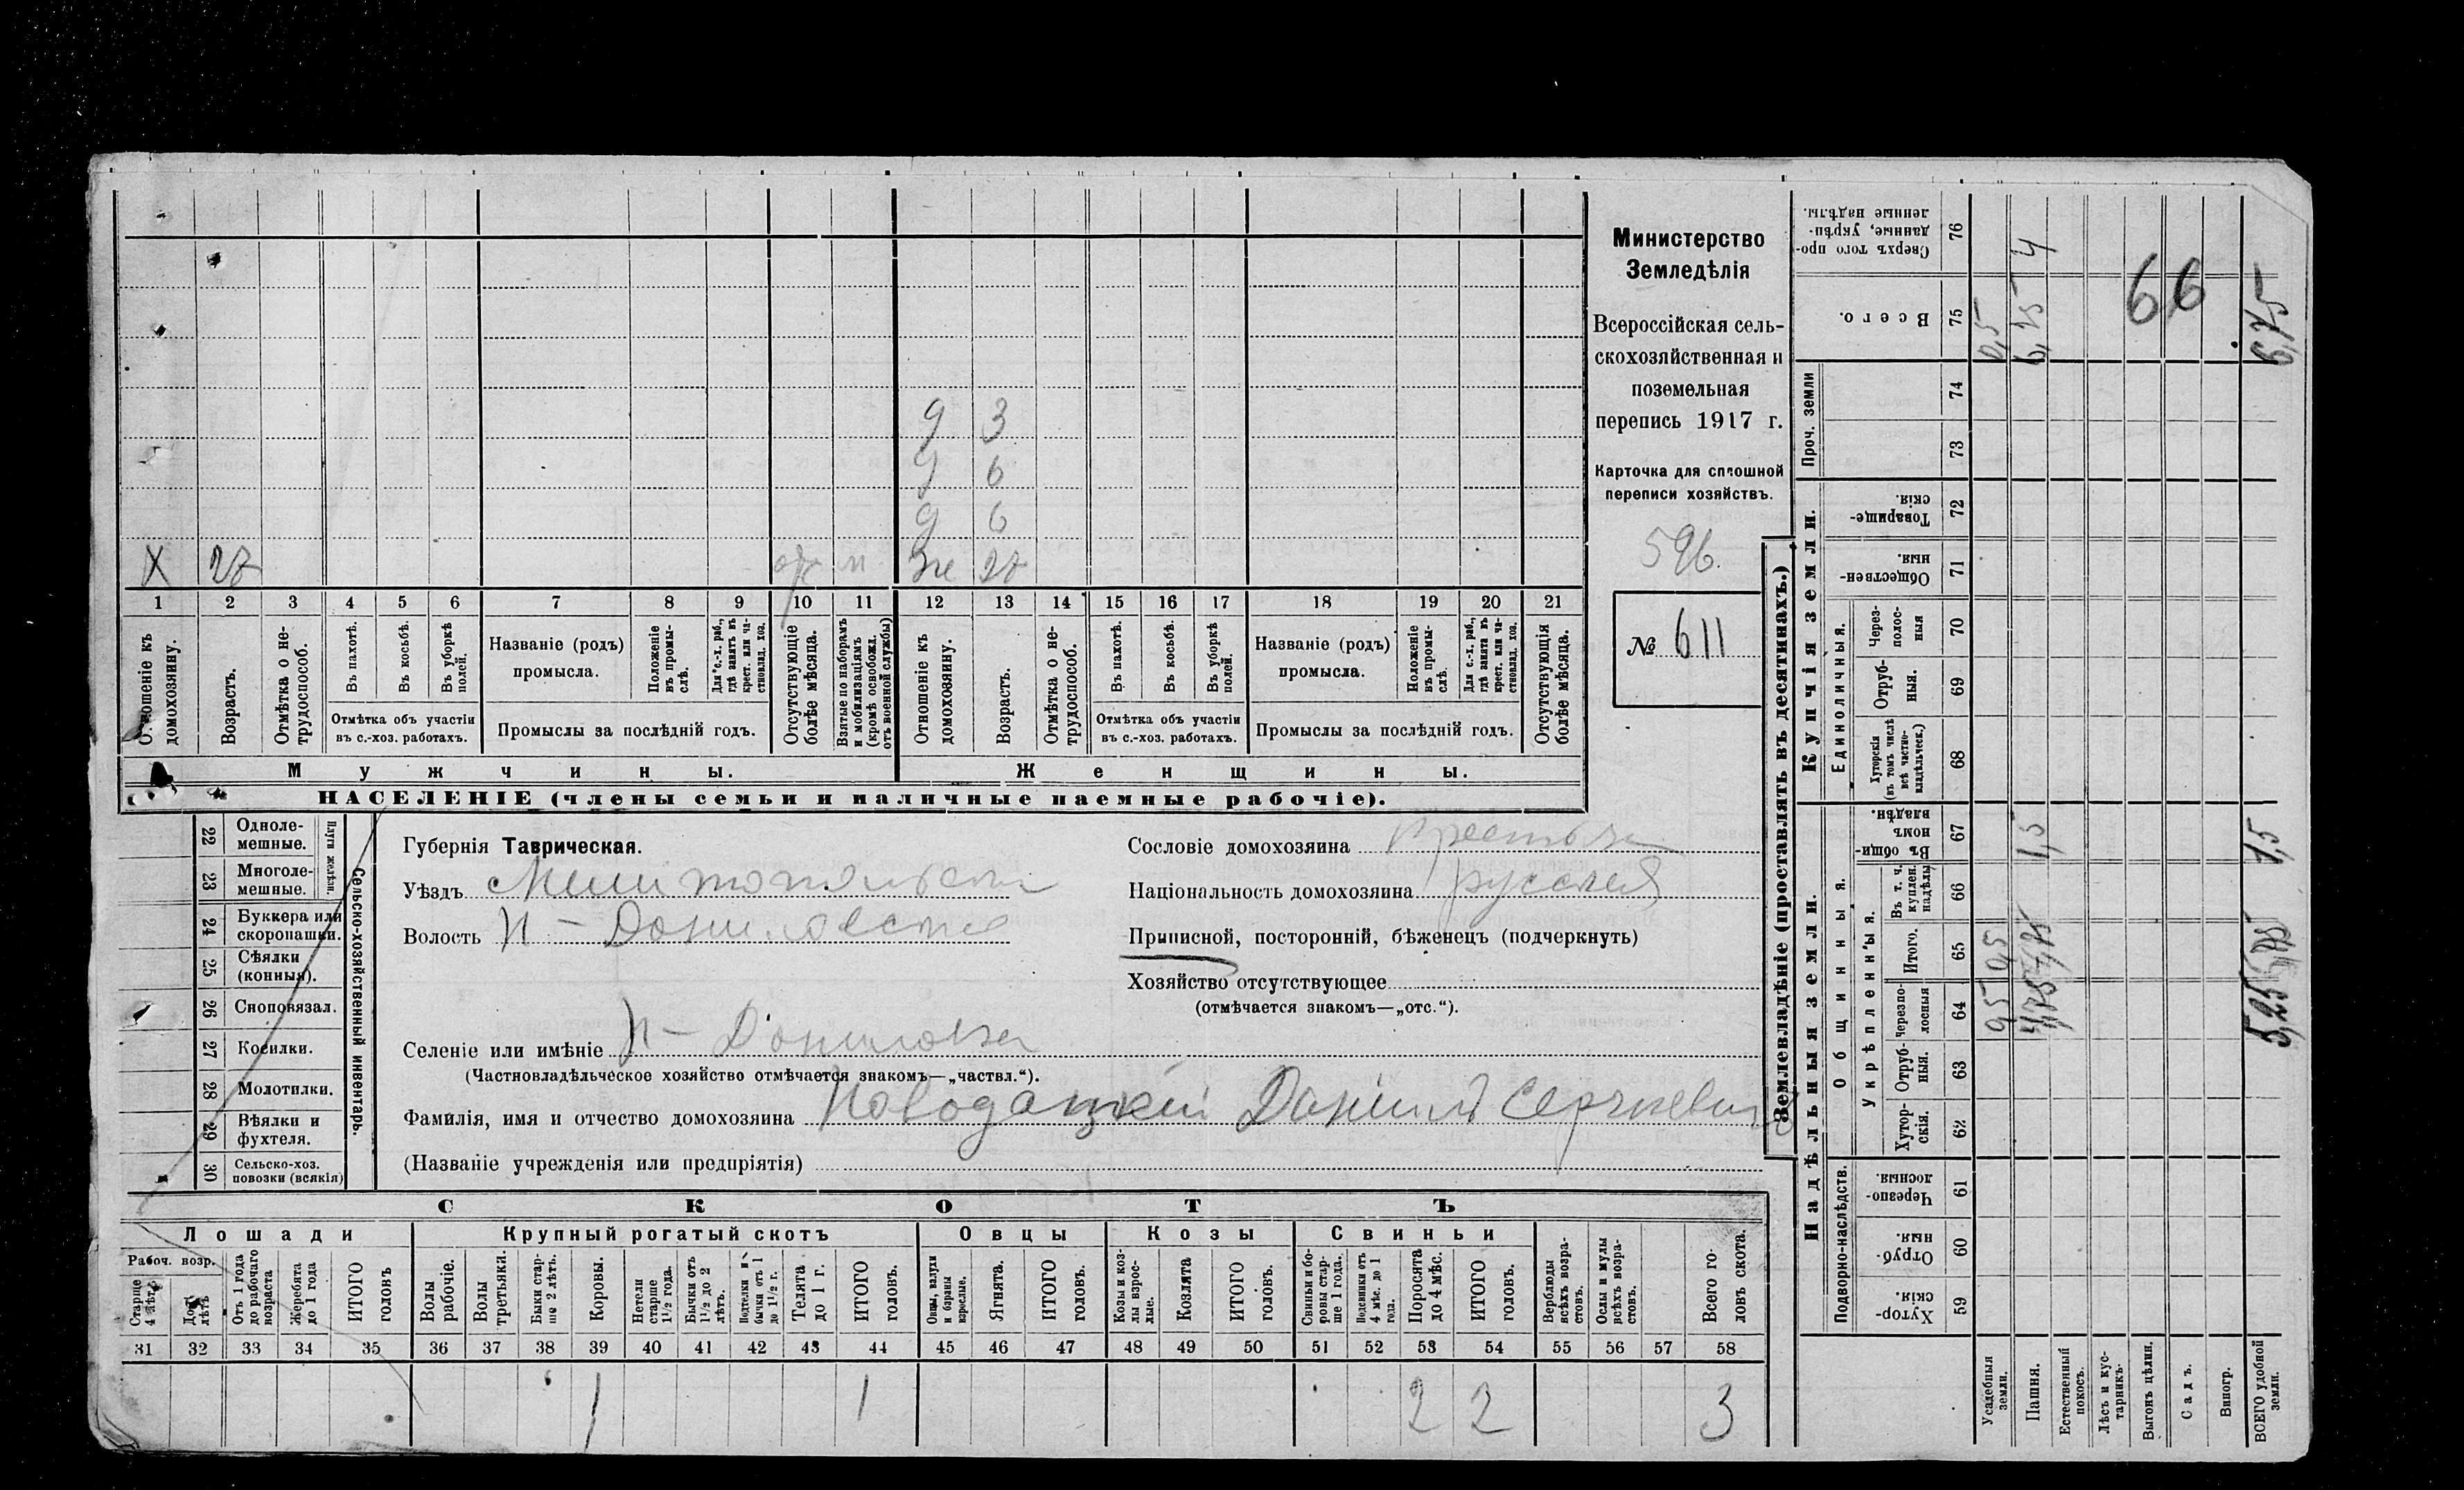 Министерство
Земледѣлія
Всероссійская сель-
скохозяйственная и
поземельная
перепись 1917 г.
Карточка для сплошной
переписи хозяйствъ.
596.
№ 611
д 3
д 6
д 6
Х 27 отс м же 27
1 2 3 4 5 6 7 8 9 10 11 12 13 14 15 16 17 18 19 20 21
Отношеніе къ домохозяину.
Возрастъ.
Отмѣтка о не-трудоспособ.
Въ пахотѣ.
Въ косьбѣ.
Въ уборкѣ полей.
Отмѣтка объ участіи
въ с.-хоз. работахъ.
Названіе (родъ)
промысла.
Положеніе въ промы-слѣ.
Для с.-х. раб., гдѣ занятъ въ крест. или ча-стновлад. хоз.
Промыслы за послѣдній годъ.
Отсутствующіе болѣе мѣсяца.
Взятые по наборамъ и мобилизаціямъ (кромѣ освобожд. отъ военной службы)
Отношеніе къ домохозяину.
Возрастъ.
Отмѣтка о не-трудоспособ.
Въ пахотѣ.
Въ косьбѣ.
Въ уборкѣ полей.
Отмѣтка объ участіи
въ с.-хоз. работахъ.
Названіе (родъ)
промысла.
Положеніе въ промы-слѣ.
Для с.-х. раб., гдѣ занята въ крест. или ча-стновлад. хоз.
Промыслы за послѣдній годъ.
Отсутствующія болѣе мѣсяца.
Мужчины. Женщины.
НАСЕЛЕНІЕ (члены семьи и наличные наемные рабочіе).
Сельско-хозяйственный инвентарь.
Плуги желѣзн.
22 Одноле-мешные.
23 Многоле-мешные.
24 Буккера или скоропашки.
25 Сѣялки (конныя).
26 Сноповязал.
27 Косилки.
28 Молотилки.
29 Вѣялки и фухтеля.
30 Сельско-хоз. повозки (всякія)
Губернія Таврическая.
Уѣздъ Мелитопольскій
Волость Н-Даниловская
Сословіе домохозяина крестьян
Національность домохозяина русскій
Приписной, посторонній, бѣженецъ (подчеркнуть)
Хозяйство отсутствующее
(отмѣчается знакомъ—„отс.“).
Селеніе или имѣніе Н-Даниловка
(Частновладѣльческое хозяйство отмѣчается знакомъ—„частвл.“).
Фамилія, имя и отчество домохозяина Новодацкій Даніилъ Сергѣевич
(Названіе учрежденія или предпріятія)
СКОТЪ
Лошади Крупный рогатый скотъ Овцы Козы Свиньи
Рабоч. возр.
Старше 4 лѣтъ
До 4 лѣтъ
Отъ 1 года до рабочаго возраста
Жеребята до 1 года
ИТОГО головъ
Волы рабочіе.
Волы третьяки.
Быки стар-ше 2 лѣтъ.
Коровы.
Нетели старше 1½ года.
Бычки отъ 1½ до 2 лѣтъ.
Подтелки и бычки отъ 1 до 1½ г.
Телята до 1 г.
ИТОГО головъ.
Овцы, валухи и бараны взрослые.
Ягнята.
ИТОГО головъ.
Козы и коз-лы взрос-лые.
Козлята
ИТОГО головъ.
Свиньи и бо-ровы стар-ше 1 года.
Подсвинки отъ 4 мѣс. до 1 года.
Поросята до 4 мѣс.
ИТОГО головъ.
Верблюды всѣхъ возра-стовъ.
Ослы и мулы всѣхъ возра-стовъ.
Всего го-ловъ скота.
31 32 33 34 35 36 37 38 39 40 41 42 43 44 45 46 47 48 49 50 51 52 53 54 55 56 57 58
1 1 2 2 3
Землевладѣніе (проставлять въ десятинахъ.)
Надѣльныя земли. Купчія земли. Проч. земли
Подворно-наслѣдств.
Общинныя.
Укрѣпленныя.
Единоличныя.
59 Хутор-скія.
60 Отруб-ныя.
61 Черезпо-лосныя
62 Хутор-скія.
63 Отруб-ныя.
64 Черезпо-лосныя
65 Итого.
66 Въ т. ч. куплен. надѣлы
67 Въ общи-номъ владѣн.
68 Хуторскія (въ томъ числѣ всѣ частно-владѣльческ.)
69 Отруб-ныя.
70 Через-полос-ныя
71 Обществен-ныя.
72 Товарище-скія.
73
74
75 Всего.
76 Сверхъ того про-данные, укрѣп-ленные надѣлы.
Усадебныя земли. 0,5 0,5 0,5
Пашня. 4,75 4,75 1,5 6,25 4
Естественный покосъ.
Лѣсъ и кус-тарникъ.
Выгонъ цѣлин.
Садъ.
Виногр.
66
ВСЕГО удобной земли. 5,25 1,5 6,75